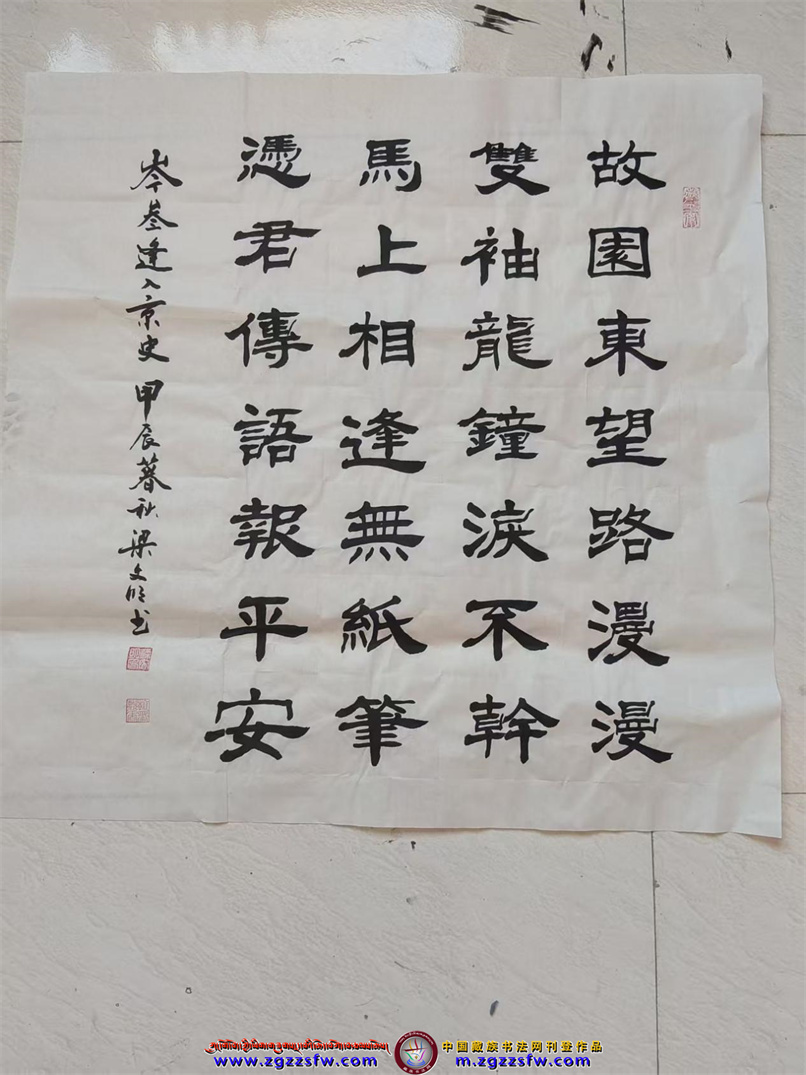 故園東望路漫漫
雙袖龍鐘淚不幹
馬上相逢無紙筆
憑君傳語報平安
岑參逢入京史 甲辰暮秋 梁文明书
中国藏族书法网刊登作品
www.zgzzsfw.com
m.zgzzsfw.com